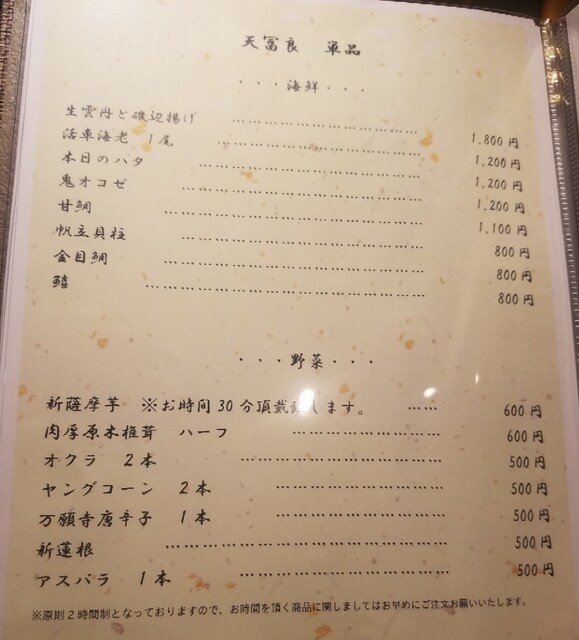 天冨良 単品
・・・海鮮・・・
生雲丹と磯辺揚げ ……………… 1,800円
活車海老 1尾 ……………… 1,200円
本日のハタ ……………… 1,200円
鬼オコゼ ……………… 1,200円
甘鯛 ……………… 1,100円
帆立貝柱 ……………… 800円
金目鯛 ……………… 800円
鱚 ……………… 800円
・・・野菜・・・
新薩摩芋 ※お時間30分頂戴致します。 …… 600円
肉厚原木椎茸 ハーフ ……………… 600円
オクラ 2本 ……………… 500円
ヤングコーン 2本 ……………… 500円
万願寺唐辛子 1本 ……………… 500円
新蓮根 ……………… 500円
アスパラ 1本 ……………… 500円
※原則2時間制となっておりますので、お時間を頂く商品に関しましてはお早めにご注文お願いいたします。